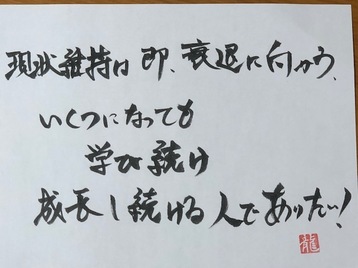 現状維持は即、衰退に向かう、
いくつになっても
学び続け
成長し続ける人でありたい！
龍